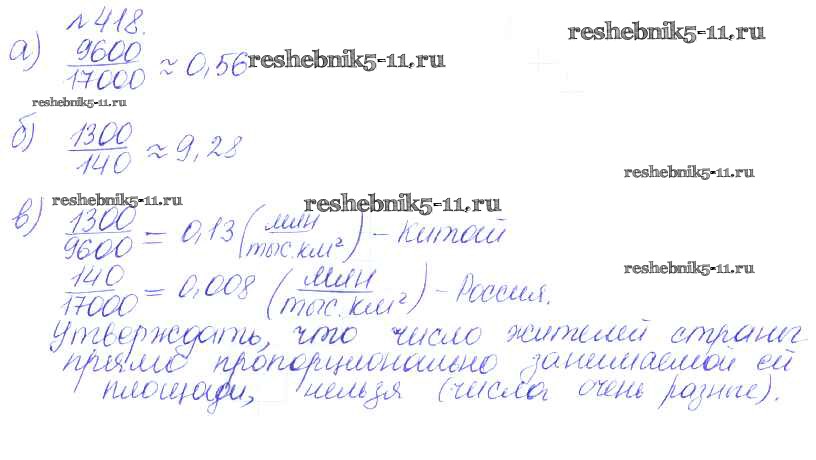 №418.
а) 9600/17000 ≈ 0,56
reshebnik5-11.ru
reshebnik5-11.ru
reshebnik5-11.ru
б) 1300/140 ≈ 9,28
reshebnik5-11.ru
reshebnik5-11.ru
reshebnik5-11.ru
в) 1300/9600 = 0,13 (млн/тыс.км²) - Китай
140/17000 = 0,008 (млн/тыс.км²) - Россия.
reshebnik5-11.ru
Утверждать, что число жителей страны
прямо пропорционально занимаемой ей
площади, нельзя (числа очень разные).